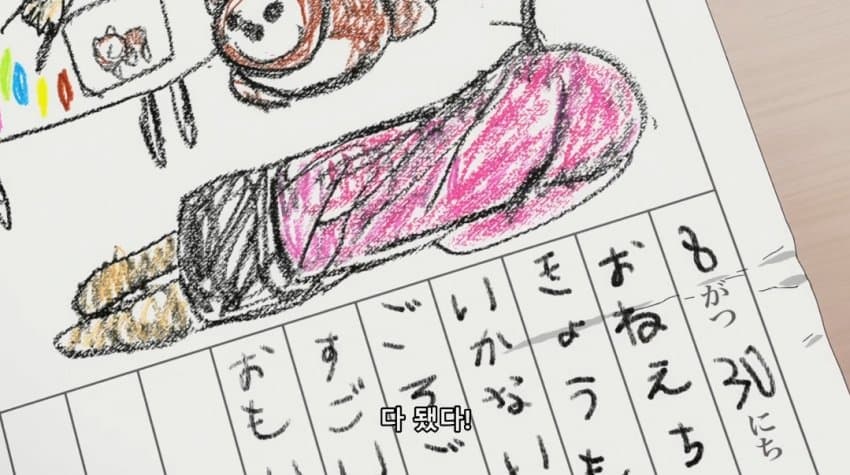 8がつ30にち
おねえち
きょうも
いかない
ごろご
すごい
おも
다 됐다!